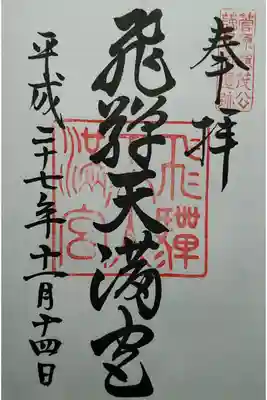 奉拝
飛騨天満宮
平成二十七年十一月十四日
飛騨
天満宮